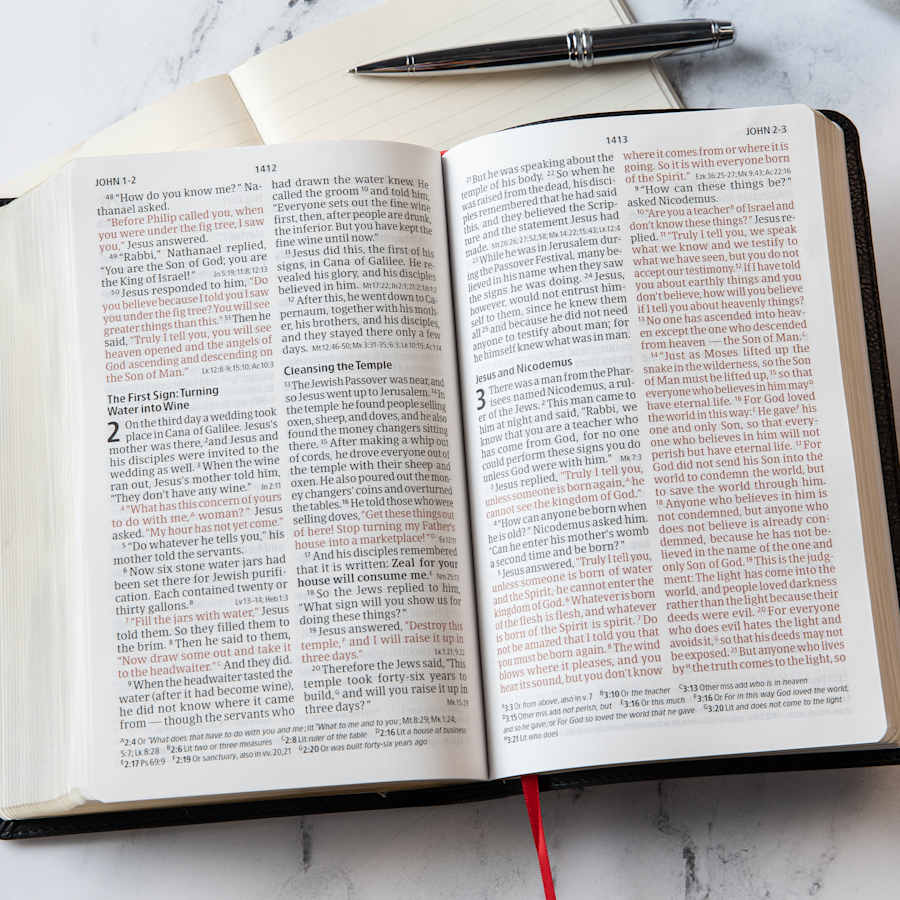 1412
JOHN 1-2
48 “How do you know me?” Na-
thanael asked.
“Before Philip called you, when
you were under the fig tree, I saw
you,” Jesus answered.
49 “Rabbi,” Nathanael replied,
“You are the Son of God; you are
the King of Israel!” Jn 5:19; 11:8; 12:13
50 Jesus responded to him, “Do
you believe because I told you I saw
you under the fig tree? You will see
greater things than this.” 51 Then he
said, “Truly I tell you, you will see
heaven opened and the angels of
God ascending and descending on
the Son of Man.” Lk 12:8-9; 15:10; Ac 10:3
The First Sign: Turning
Water into Wine
2 On the third day a wedding took
place in Cana of Galilee. Jesus’s
mother was there, 2 and Jesus and
his disciples were invited to the
wedding as well. 3 When the wine
ran out, Jesus’s mother told him,
“They don’t have any wine.” Jn 2:11
4 “What has this concern of yours
to do with me, A woman?” Jesus
asked. “My hour has not yet come.”
5 “Do whatever he tells you,” his
mother told the servants.
6 Now six stone water jars had
been set there for Jewish purifi-
cation. Each contained twenty or
thirty gallons. B Lv 13–14; Heb 1:3
7 “Fill the jars with water,” Jesus
told them. So they filled them to
the brim. 8 Then he said to them,
“Now draw some out and take it
to the headwaiter.” C And they did.
9 When the headwaiter tasted the
water (after it had become wine),
he did not know where it came
from — though the servants who
had drawn the water knew. He
called the groom 10 and told him,
“Everyone sets out the fine wine
first, then, after people are drunk,
the inferior. But you have kept the
fine wine until now.”
11 Jesus did this, the first of his
signs, in Cana of Galilee. He re-
vealed his glory, and his disciples
believed in him.
12 After this, he went down to Ca-
pernaum, together with his moth-
er, his brothers, and his disciples,
and they stayed there only a few
days. Mt 12:46-50; Mk 3:31-35; 6:3; Lk 10:15; Ac 1:14
Cleansing the Temple
13 The Jewish Passover was near, and
so Jesus went up to Jerusalem. 14 In
the temple he found people selling
oxen, sheep, and doves, and he also
found the money changers sitting
there. 15 After making a whip out
of cords, he drove everyone out of
the temple with their sheep and
oxen. He also poured out the mon-
ey changers’ coins and overturned
the tables. 16 He told those who were
selling doves, “Get these things out
of here! Stop turning my Father’s
house into a marketplace!” D
17 And his disciples remembered
that it is written: Zeal for your
house will consume me. E
18 So the Jews replied to him,
“What sign will you show us for
doing these things?”
19 Jesus answered, “Destroy this
temple, F and I will raise it up in
three days.”
20 Therefore the Jews said, “This
temple took forty-six years to
build, G and will you raise it up in
three days?” Mk 15:29
A 2:4 Or “What does that have to do with you and me; lit “What to me and to you; Mt 8:29; Mk 1:24;
5:7; Lk 8:28 B 2:6 Lit two or three measures C 2:8 Lit ruler of the table D 2:16 Lit a house of business
E 2:17 Ps 69:9 F 2:19 Or sanctuary, also in vv. 20,21 G 2:20 Or was built forty-six years ago
1413
JOHN 2-3
21 But he was speaking about the
temple of his body. 22 So when he
was raised from the dead, his disci-
ples remembered that he had said
this, and they believed the Scrip-
ture and the statement Jesus had
made.
23 While he was in Jerusalem dur-
ing the Passover Festival, many be-
lieved in his name when they saw
the signs he was doing. 24 Jesus,
however, would not entrust him-
self to them, since he knew them
all 25 and because he did not need
anyone to testify about man; for
he himself knew what was in man.
Jesus and Nicodemus
3 There was a man from the Phar-
isees named Nicodemus, a rul-
er of the Jews. 2 This man came to
him at night and said, “Rabbi, we
know that you are a teacher who
has come from God, for no one
could perform these signs you do
unless God were with him.” Mk 7:3
3 Jesus replied, “Truly I tell you,
unless someone is born again, A he
cannot see the kingdom of God.”
4 “How can anyone be born when
he is old?” Nicodemus asked him.
“Can he enter his mother’s womb
a second time and be born?”
5 Jesus answered, “Truly I tell you,
unless someone is born of water
and the Spirit, he cannot enter the
kingdom of God. 6 Whatever is born
of the flesh is flesh, and whatever
is born of the Spirit is spirit. 7 Do
not be amazed that I told you that
you must be born again. 8 The wind
blows where it pleases, and you
hear its sound, but you don’t know
where it comes from or where it is
going. So it is with everyone born
of the Spirit.” Ezk 36:25-27; Mk 9:43; Ac 22:16
9 “How can these things be?”
asked Nicodemus.
10 “Are you a teacher B of Israel and
don’t know these things?” Jesus re-
plied. 11 “Truly I tell you, we speak
what we know and we testify to
what we have seen, but you do not
accept our testimony. 12 If I have told
you about earthly things and you
don’t believe, how will you believe
if I tell you about heavenly things?
13 No one has ascended into heav-
en except the one who descended
from heaven — the Son of Man. C
14 “Just as Moses lifted up the
snake in the wilderness, so the Son
of Man must be lifted up, 15 so that
everyone who believes in him may D
have eternal life. 16 For God loved
the world in this way: E He gave F his
one and only Son, so that every-
one who believes in him will not
perish but have eternal life. 17 For
God did not send his Son into the
world to condemn the world, but
to save the world through him.
18 Anyone who believes in him is
not condemned, but anyone who
does not believe is already con-
demned, because he has not be-
lieved in the name of the one and
only Son of God. 19 This is the judg-
ment: The light has come into the
world, and people loved darkness
rather than the light because their
deeds were evil. 20 For everyone
who does evil hates the light and
avoids it, G so that his deeds may not
be exposed. 21 But anyone who lives
by H the truth comes to the light, so
A 3:3 Or from above, also in v. 7 B 3:10 Or the teacher C 3:13 Other mss add who is in heaven
D 3:15 Other mss add not perish, but E 3:16 Or this much F 3:16 Or For in this way God loved the world,
and so he gave, or For God so loved the world that he gave G 3:20 Lit and does not come to the light
H 3:21 Lit who does